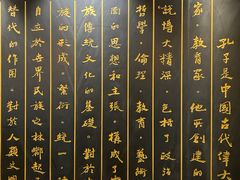 孔子是中國古代偉大
家 教育家。他所創建的
說博大精深。包括了政治
哲學 倫理 教育 藝術
的思想和主張。構成了
族傳統文化的基礎。對於
族的形成。繁衍。統一
自立於世界民族之林都起
替代的作用。對於人類